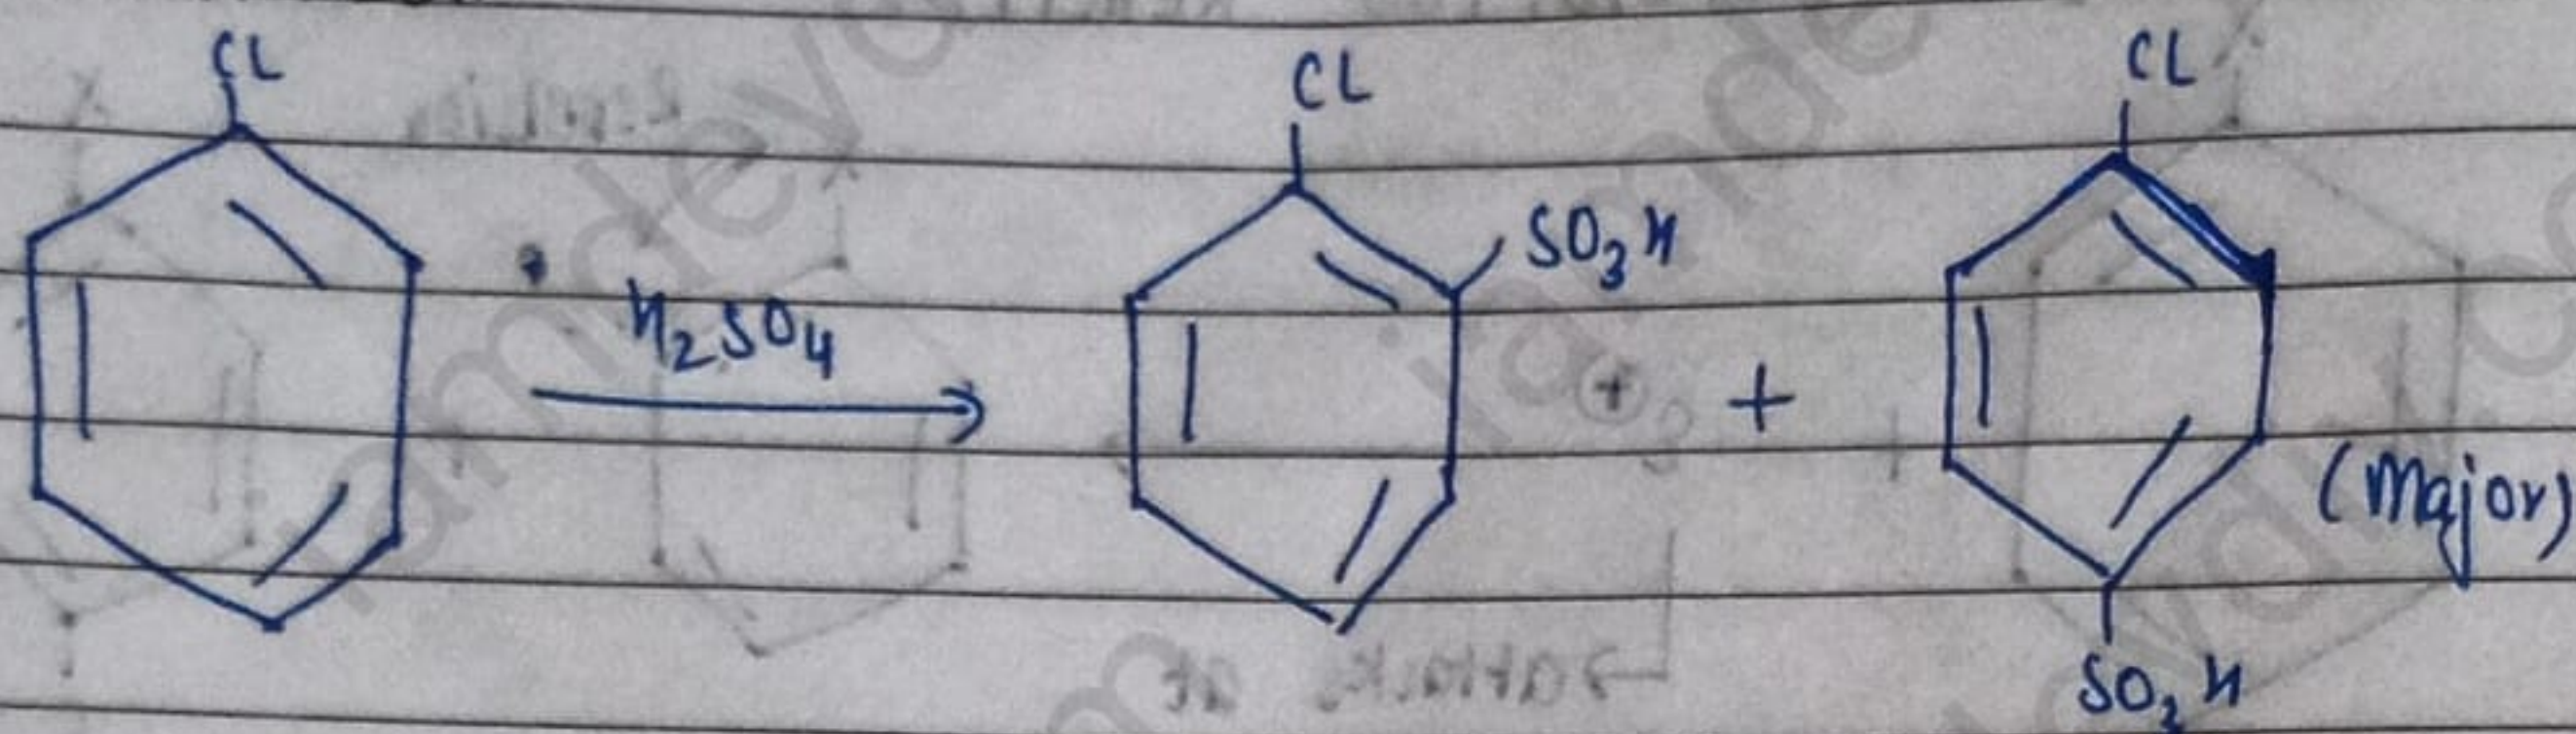 CL
H₂SO₄
CL
SO₃H
+
CL
(Major)
SO₃H